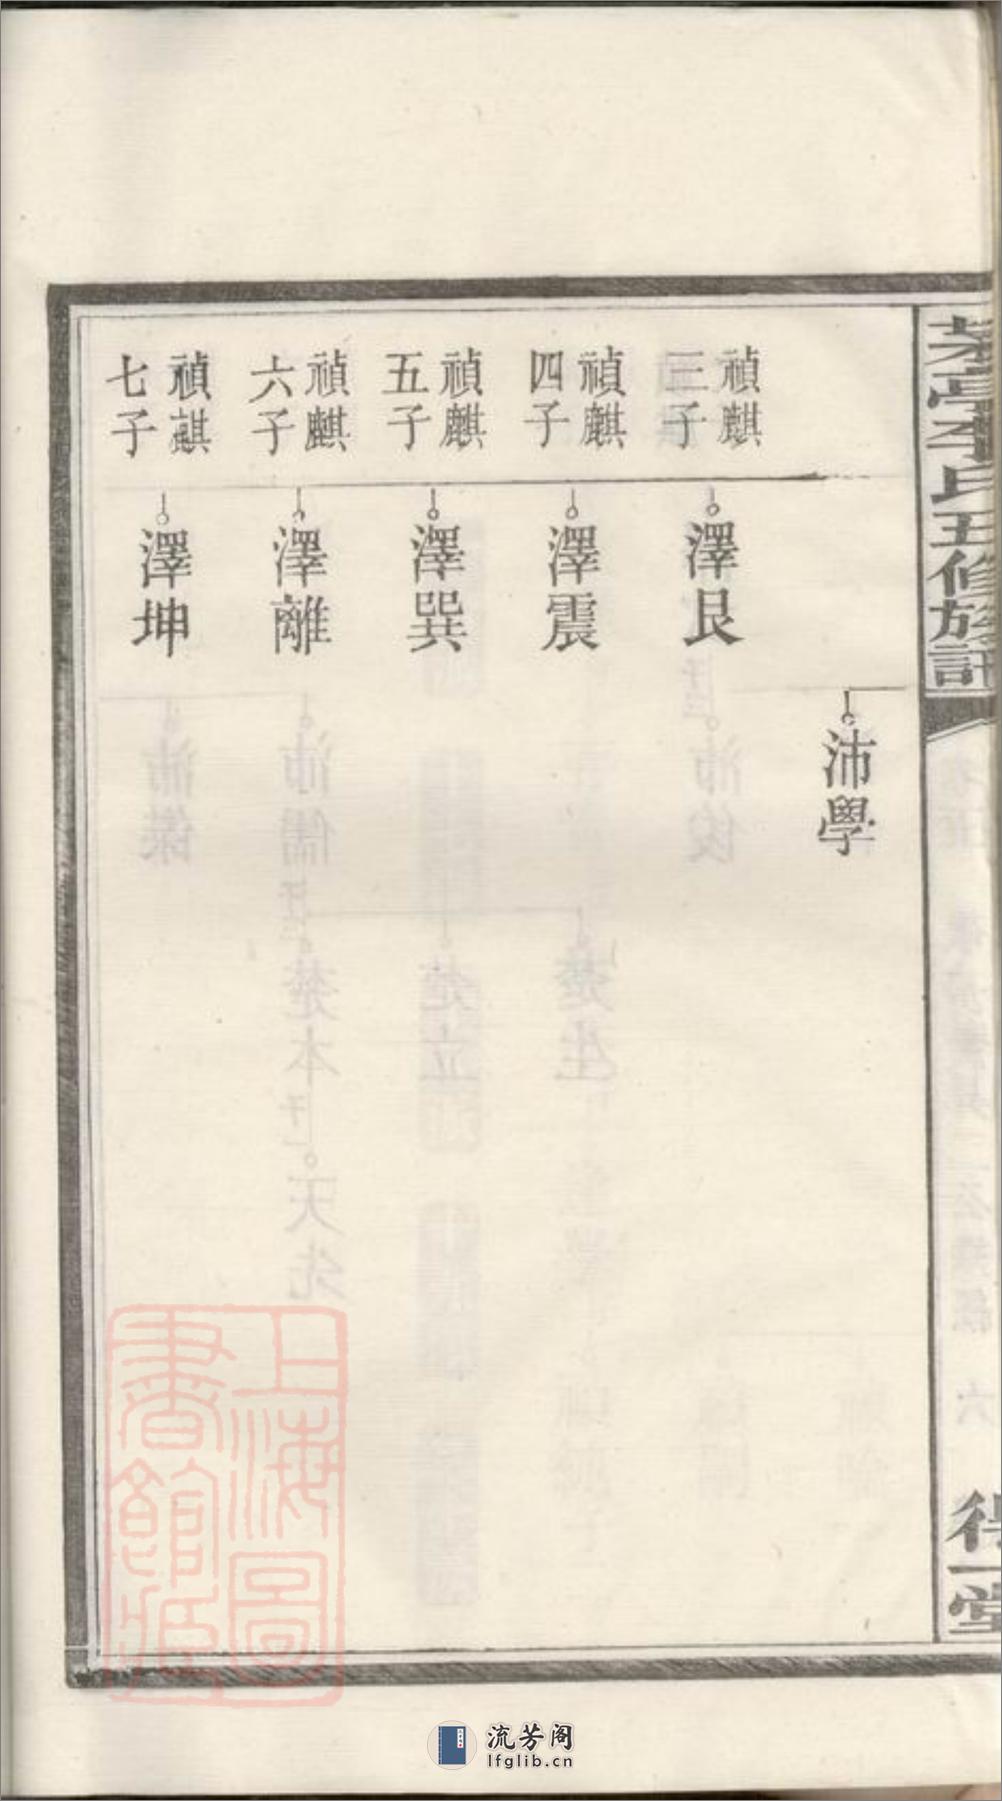 茶亭李氏五修族譜
得一堂
沛學
禎麒
三子
澤艮
禎麒
四子
澤震
禎麒
五子
澤巽
禎麒
六子
澤離
禎麒
七子
澤坤
上海圖
書館藏
流芳阁
lfglib.cn